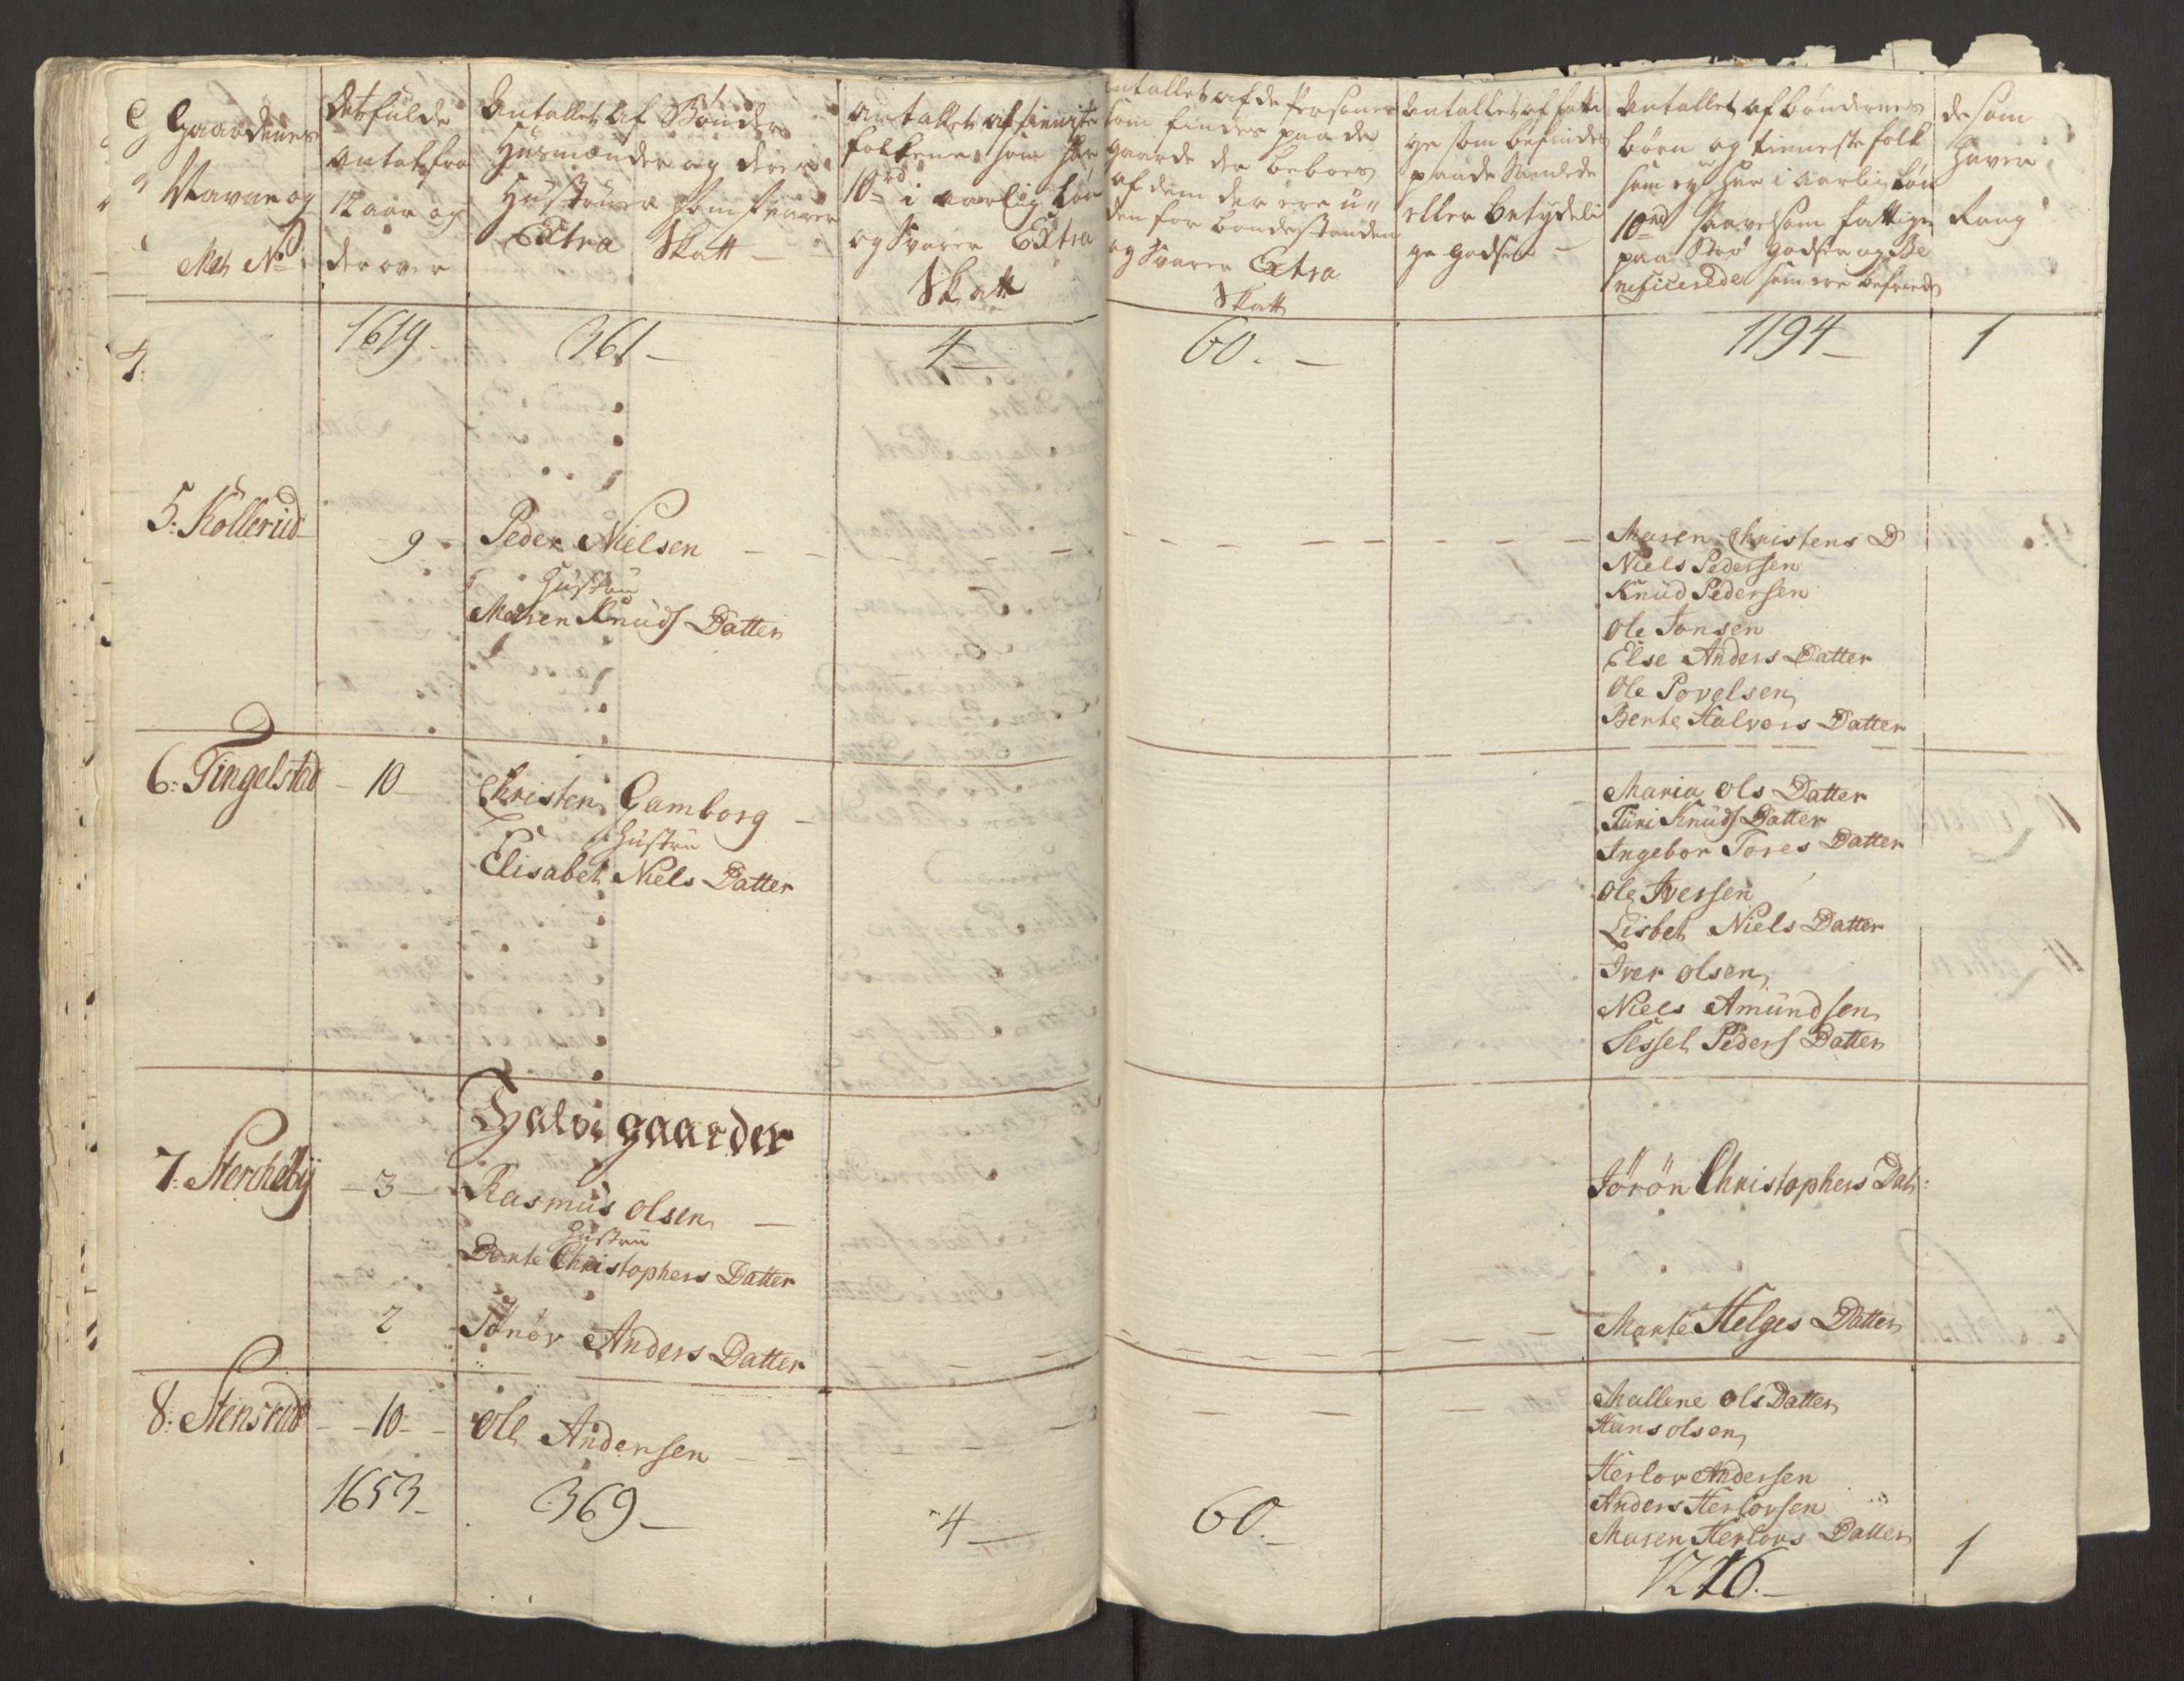 Gaardenes
Navne og
Mat No
Det fulde
antal fra
12 aar og
derover
Antallet af Bønder
Husmænder og deres
Hustruer som svarer
Extra Skatt
Antallet af tieniste
folkene som har
10rd i aarlig løn
og svarer Extra
Skatt
antallet af de Personer
som findes paa de
gaarde der beboes
af dem der ere u-
den for bondestanden
og svarer Extra
Skatt
Antallet af fatti
ge som befindes
paa de Samlede
eller betydeli
ge godser
Antallet af bøndernes
børn og tienneste folk
som ey har i aarlig løn
10rd saavelsom fattige
paa Strø godser og Be
neficerede som ere befriede
de som
haver
Rang
4.
1619
361
4
60.
1194
1
5. Kollerud
9
Peder Nielsen
Hustru
Maren Knuds Datter
Maren Christens D
Niels Pedersen
Knud Pedersen
Ole Jonsen
Else Anders Datter
Ole Povelsen
Bente Halvors Datter
6. Tingelstad
10
Christen Gamborg
Hustru
Elisabet Niels Datter
Maria Ols Datter
Turi Knuds Datter
Ingebor Tores Datter
Ole Iversen
Lisbet Niels Datter
Iver olsen
Niels Amundsen
Sessel Peders Datter
Halve gaarder
7. Sterckeby
3
Rasmus olsen
Hustru
Dorte Christophers Datter
Jörön Christophers Dat:
2
Jönör Anders Datter
Marte Helges Datter
8. Stensrud
10
Ole Andersen
Mallene Ols Datter
Hans olsen
Herlov Andersen
Anders Herlovsen
Maren Herlovs Datter
1653
369
4
60.
1216.
1